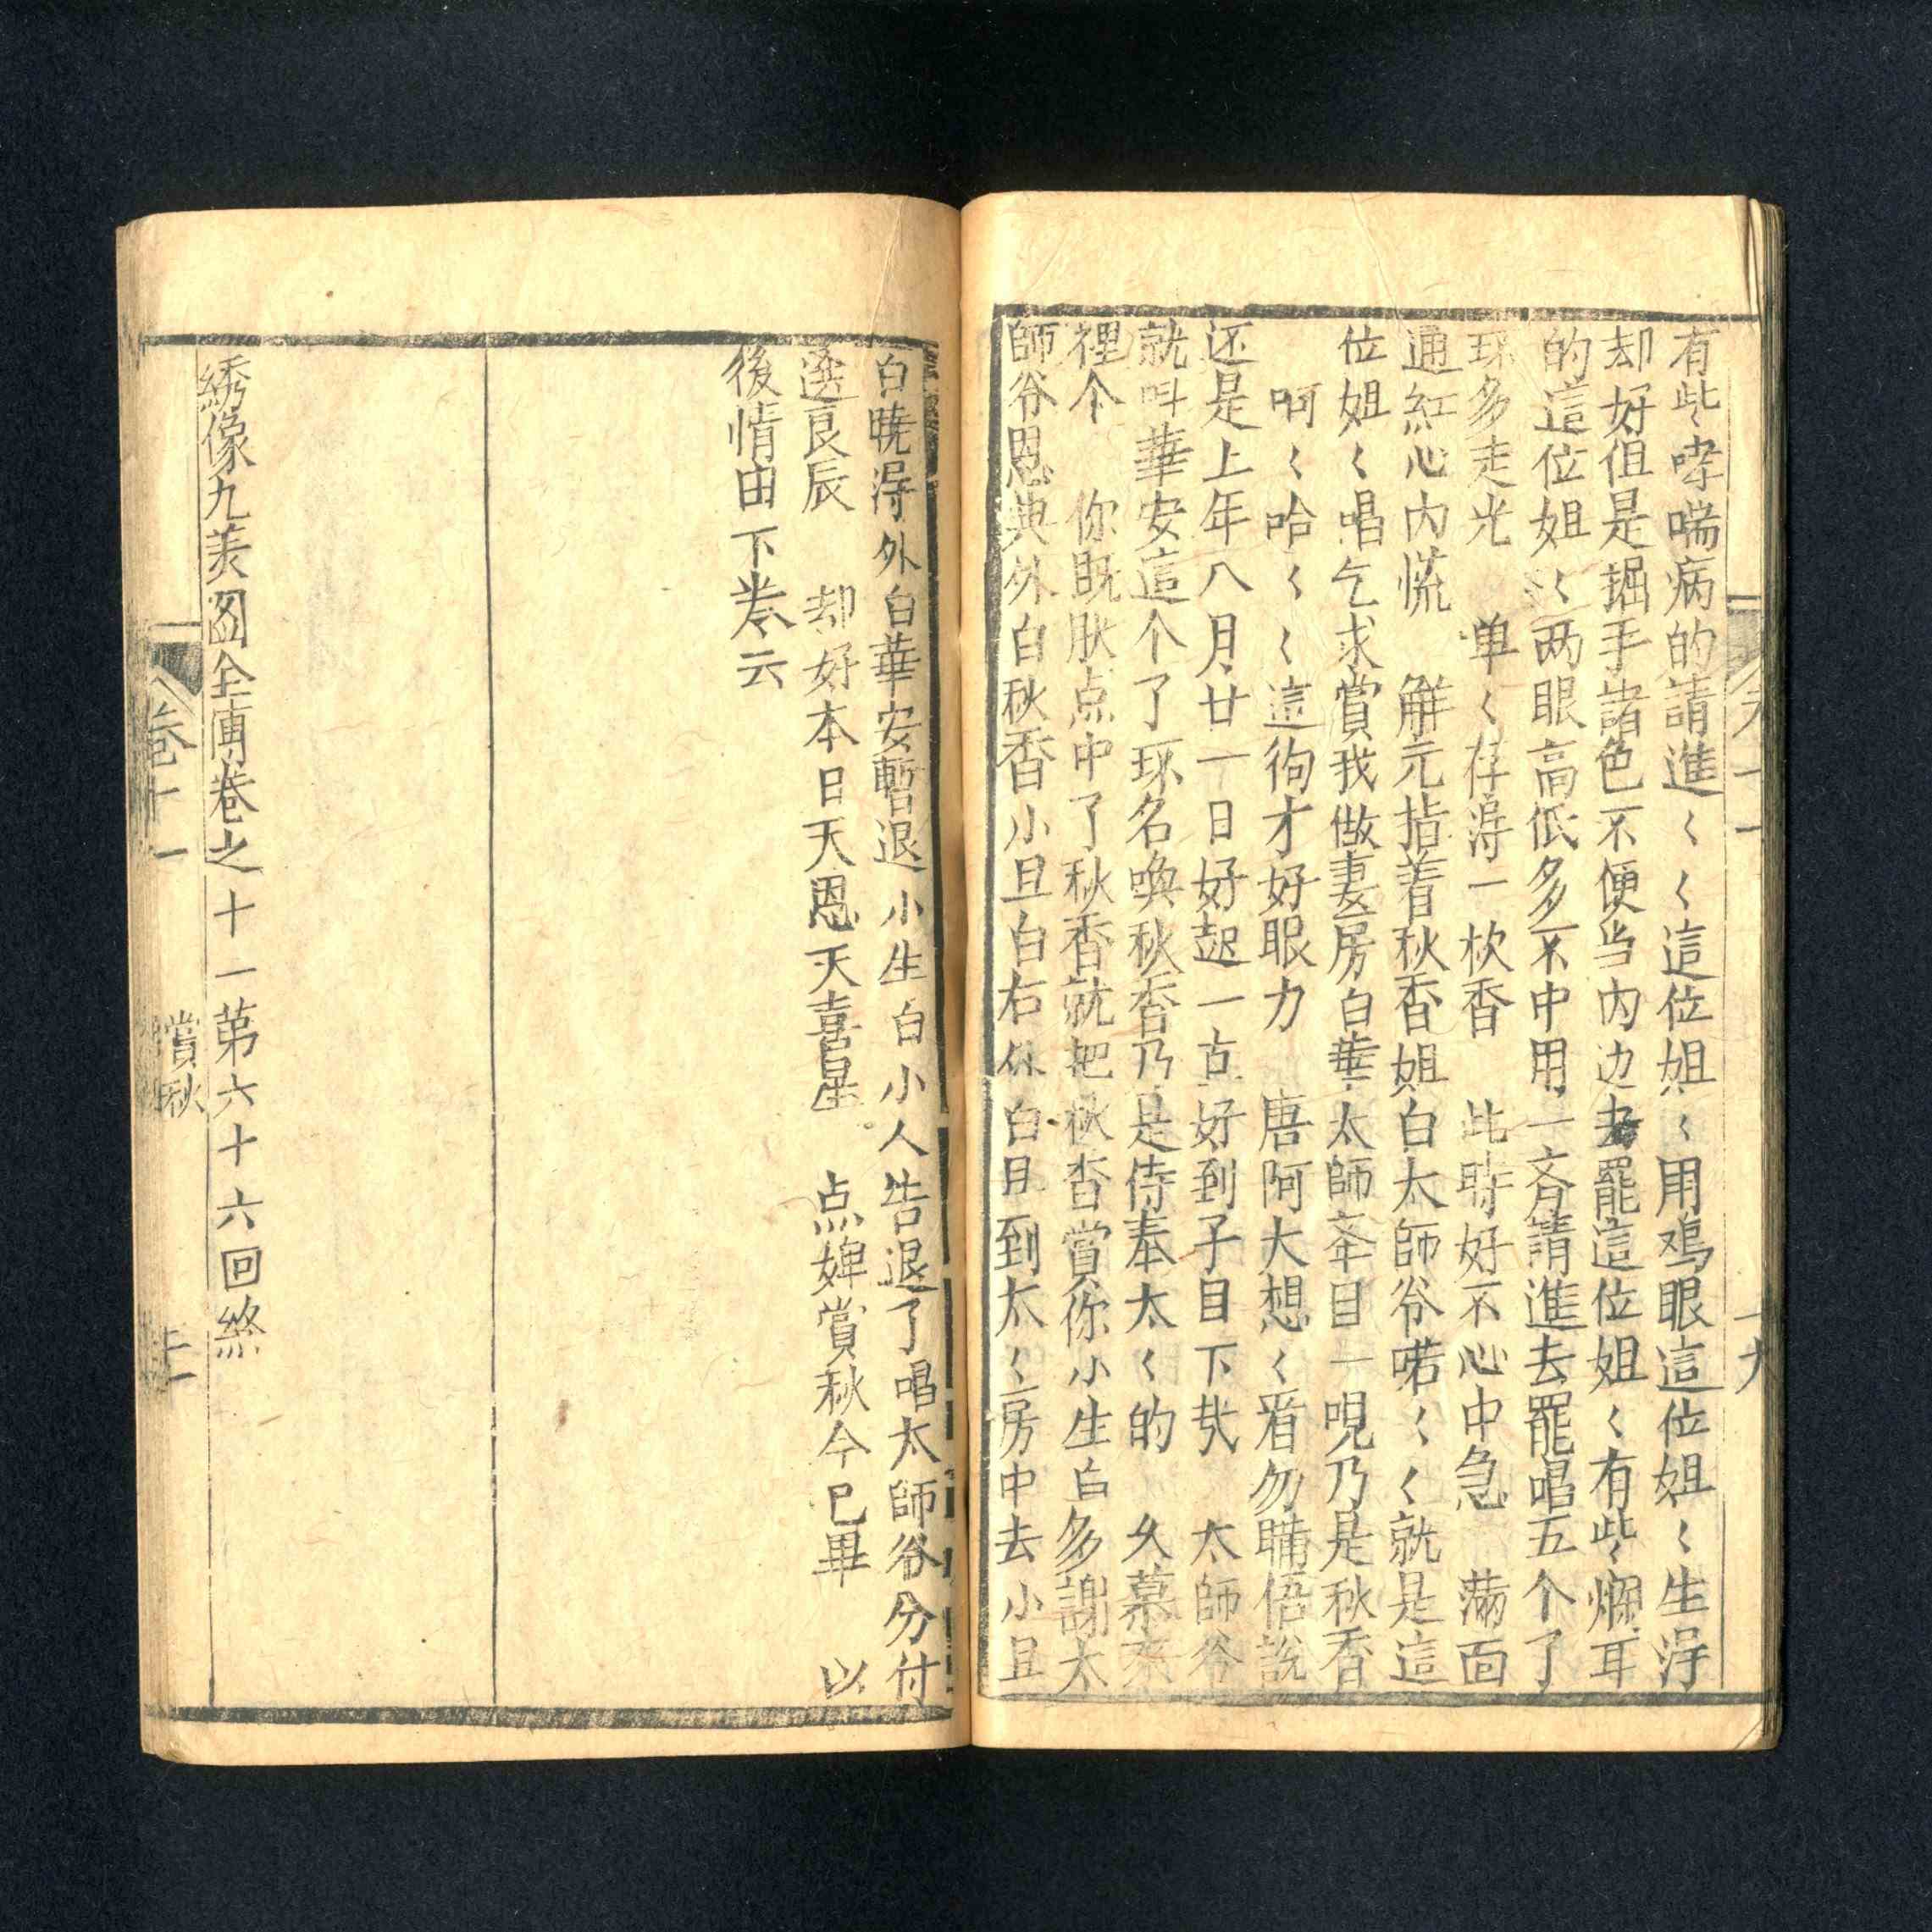 有些哮喘病的請進〱〱這位姐〱用鳮眼這位姐〱生淂
却好但是掘手諸色不便当内边去罷這位姐〱有些爛耳
的這位姐〱两眼高低多不中用一齐請進去罷唱五个了
环多走光 单〱存淂一秋香 此時好不心中急 满面
通紅心内慌 觧元拈着秋香姐白太師爷喏〱〱就是這
位姐〱唱乞求賞我做妻房白華太師夲目一晛乃是秋香
啊〱哈〱〱這狥才好眼力 唐阿大想〱看勿 說
还是上年八月廿一日好起一 好到子目下 太師爷
就呌華安這个了环名喚秋香乃是侍奉太〱的 久慕
裡个 你既 点中了秋香就把秋香賞你小生白多謝太
師爷恩典外白秋香小旦白右 白 到太〱房中去小旦
白曉淂外白華安暫退小生白小人告退了唱太師爷分付
選良辰 却好本日天恩天喜星 点婢賞秋今已畢 以
後情由下卷云
綉像九美圖全傳卷之十一第六十六回終
卷十一 賞秋